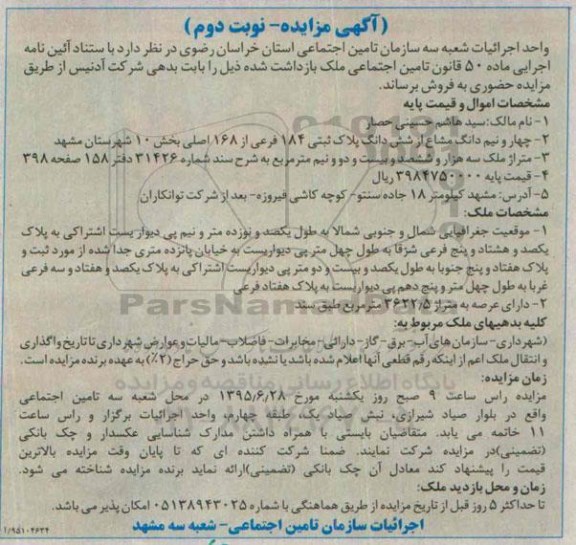 (آگهی مزایده- نوبت دوم)
واحد اجرائیات شعبه سه سازمان تامین اجتماعی استان خراسان رضوی در نظر دارد با ستناد آئین نامه
اجرایی ماده ۵۰ قانون تامین اجتماعی ملک بازداشت شده ذیل را بابت بدهی شرکت آدنیس از طریق
مزایده حضوری به فروش برساند.
مشخصات اموال و قیمت پایه
۱- نام مالک:سید هاشم حسینی حصار
۲- چهار و نیم دانگ مشاع از شش دانگ پلاک ثبتی ۱۸۴ فرعی از ۱۶۸ اصلی بخش ۱۰ شهرستان مشهد
۳- متراژ ملک سه هزار و ششصد و بیست و دو و نیم مترمربع به شرح سند شماره ۳۱۴۲۶ دفتر ۱۵۸ صفحه ۳۹۸
۴- قیمت پایه ۳۹۸۴۷۵۰۰۰۰ ریال
۵- آدرس: مشهد کیلومتر ۱۸ جاده سنتو- کوچه کاشی فیروزه- بعد از شرکت توانکاران
مشخصات ملک:
۱- موقعیت جغرافیایی شمال و جنوبی شمالا به طول یکصد و نوزده متر و نیم پی دیوار یست اشتراکی به پلاک
یکصد و هشتاد و پنج فرعی شرقا به طول چهل متر پی دیواریست به خیابان پانزده متری جدا شده از مورد ثبت و
پلاک هفتاد و پنج جنوبا به طول یکصد و بیست و دو متر پی دیواریست اشتراکی به پلاک یکصد و هفتاد و سه فرعی
غربا به طول چهل متر و پنج دهم پی دیواریست به پلاک هفتاد فرعی
۲- دارای عرصه به متراژ ۳۶۲۲/۵ مترمربع طبق سند
کلیه بدهیهای ملک مربوط به:
(شهرداری- سازمان های آب- برق- گاز- دارائی- مخابرات- فاضلاب- مالیات و عوارض شهرداری تا تاریخ واگذاری
و انتقال ملک اعم از اینکه رقم قطعی آنها اعلام شده باشد یا نشده باشد و حق حراج (۲٪) به عهده برنده مزایده است.
زمان مزایده:
مزایده راس ساعت ۹ صبح روز یکشنبه مورخ ۱۳۹۵/۶/۲۸ در محل شعبه سه تامین اجتماعی
واقع در بلوار صیاد شیرازی، نبش صیاد یک، طبقه چهارم، واحد اجرائیات برگزار و راس ساعت
۱۱ خاتمه می یابد. متقاضیان بایستی با همراه داشتن مدارک شناسایی عکسدار و چک بانکی
(تضمینی)در مزایده شرکت نمایند. ضمنا شرکت کننده ای که تا پایان وقت مزایده بالاترین
قیمت را پیشنهاد کند معادل آن چک بانکی (تضمینی)ارائه نماید برنده مزایده شناخته می شود.
زمان و محل بازدید ملک:
تا حداکثر ۵ روز قبل از تاریخ مزایده از طریق هماهنگی با شماره ۰۵۱۳۸۹۴۳۰۲۵ امکان پذیر می باشد.
اجرائیات سازمان تامین اجتماعی- شعبه سه مشهد
۱/۹۵۱۰۴۶۳۴
ParsNamadData
پایگاه اطلاع رسانی مناقصه و مزایده